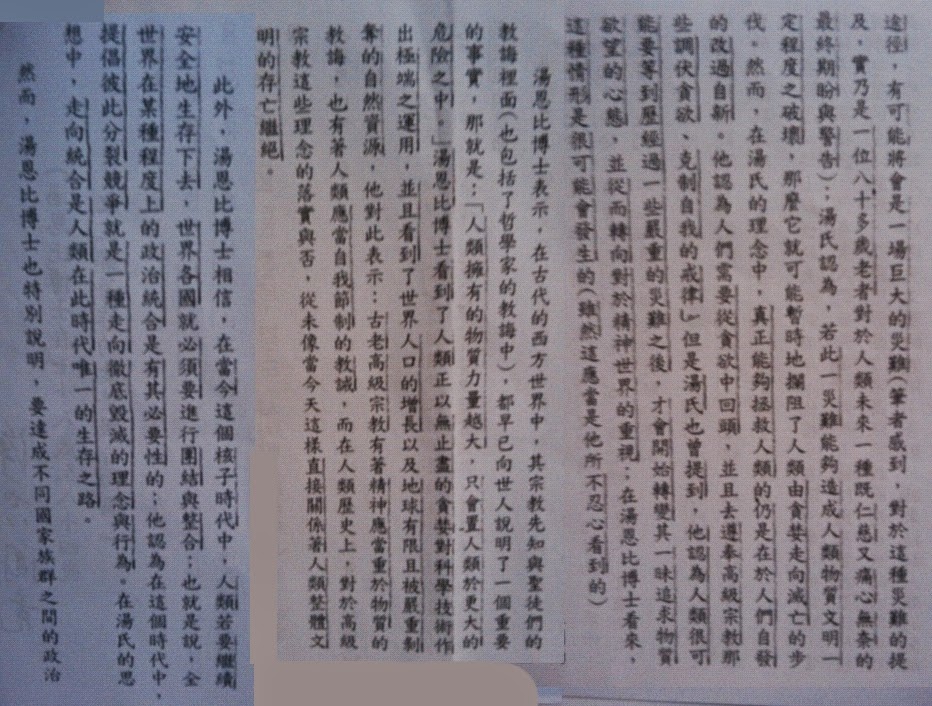 途徑，有可能將會是一場巨大的災難(筆者感到，對於這種災難的提
及，實乃是一位八十多歲老者對於人類未來一種既仁慈又痛心無奈的
最終期盼與警告)；湯氏認為，若此一災難能夠造成人類物質文明一
定程度之破壞，那麼它就可能暫時地攔阻了人類由貪婪走向滅亡的步
伐。然而，在湯氏的理念中，真正能夠拯救人類的仍是在於人們自發
的改過自新。他認為人們需要從貪欲中回頭，並且去遵奉高級宗教那
些調伏貪欲、克制自我的戒律」但是湯氏也曾提到，他認為人類很可
能要等到歷經過一些嚴重的災難之後，才會開始轉變其一味追求物質
欲望的心態，並從而轉向對於精神世界的重視；在湯恩比博士看來，
這種情形是很可能會發生的(雖然這應當是他所不忍心看到的)
湯恩比博士表示，在古代的西方世界中，其宗教先知與聖徒們的
教誨裡面(也包括了哲學家的教誨中)，都早已向世人說明了一個重要
的事實，那就是：「人類擁有的物質力量越大，只會置人類於更大的
危險之中。」湯恩比博士看到了人類正以無止盡的貪婪對科學技術作
出極端之運用，並且看到了世界人口的增長以及地球有限且被嚴重剝
奪的自然資源，他對此表示：古老高級宗教有著精神應當重於物質的
教誨，也有著人類應當自我節制的教誡，而在人類歷史上，對於高級
宗教這些理念的落實與否，從未像當今天這樣直接關係著人類整體文
明的存亡繼絕。
此外，湯恩比博士相信，在當今這個核子時代中，人類若要繼續
安全地生存下去，世界各國就必須要進行團結與整合；也就是說，全
世界在某種程度上的政治統合是有其必要性的；他認為在這個時代中，
提倡彼此分裂競爭就是一種走向徹底毀滅的理念與行為。在湯氏的思
想中，走向統合是人類在此時代唯一的生存之路。
然而，湯恩比博士也特別說明，要達成不同國家族群之間的政治